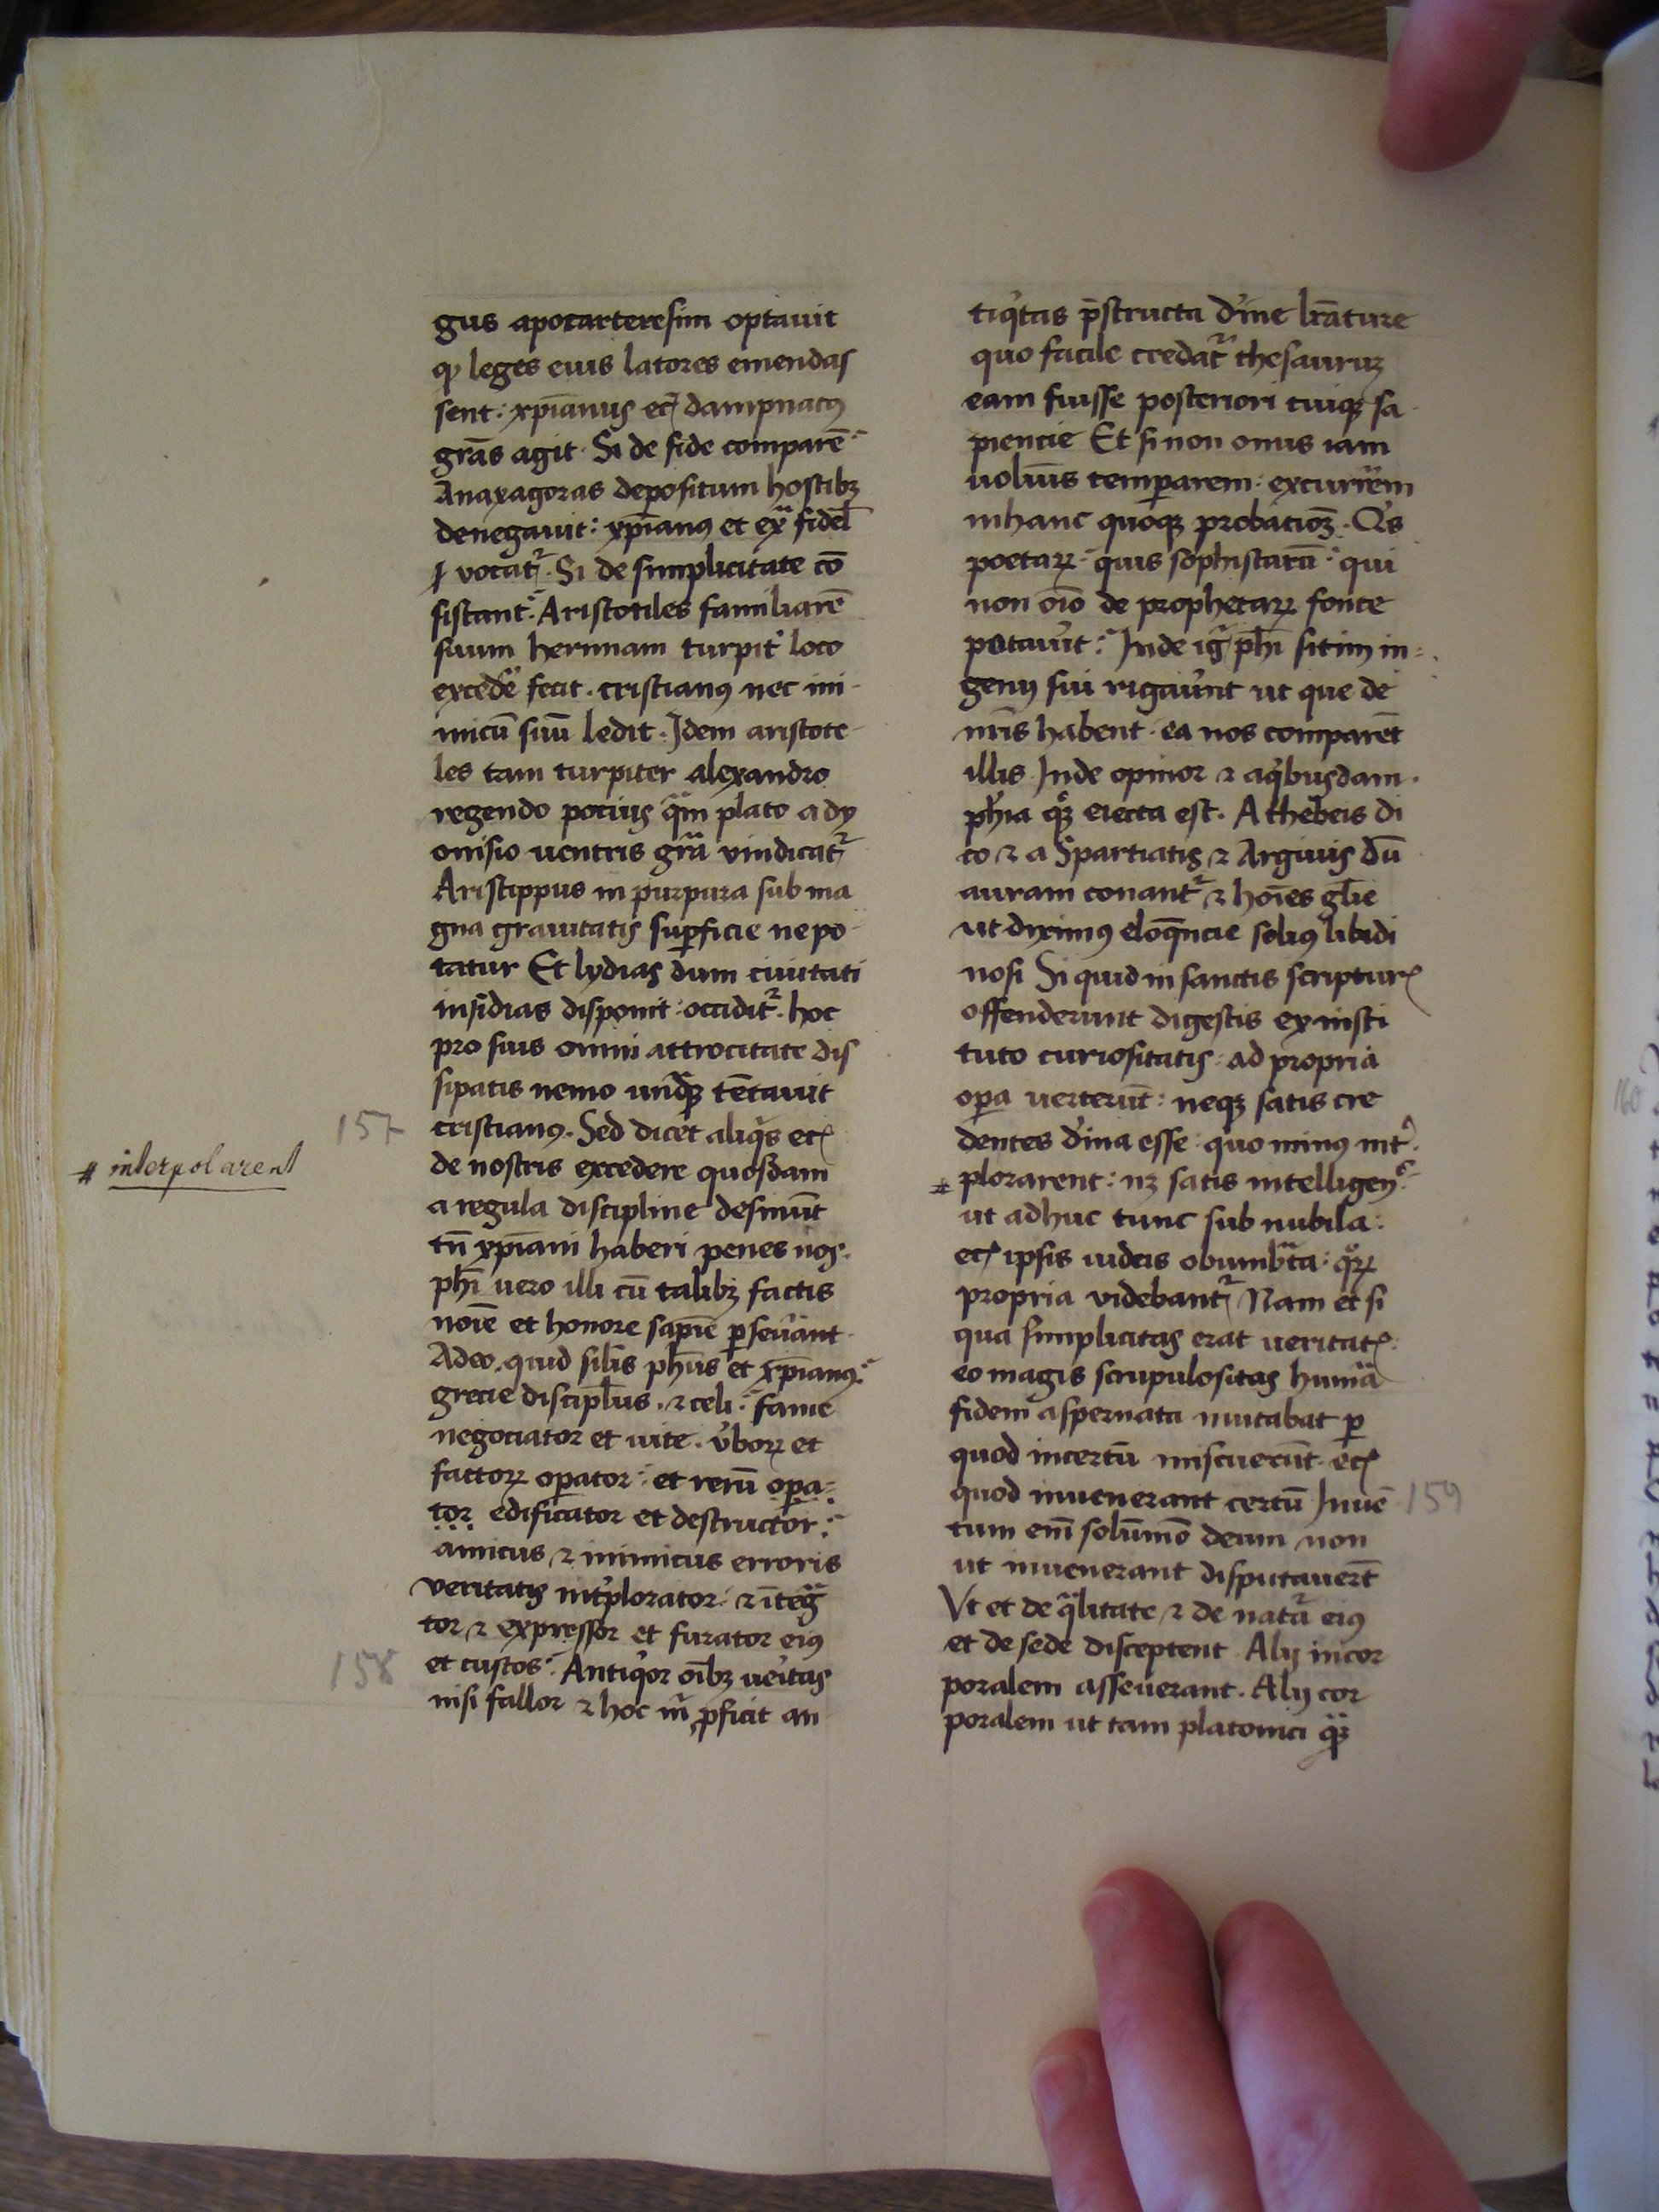 gus apocarteresim optauit
qꝫ leges eius latores emendas
sent : xp̄ianus etꝭ dampnatꝰ
grās agit · Si de fide comparē
Anaxagoras depositum hostibꝫ
denegauit : xp̄ianꝰ et exᵃ fidel̄
vocatᷣ . Si de simplicitate cō
sistant : Aristotiles familiarē
suum hermiam turpit᾽ loco
excedē fecit . cristianꝰ nec ini-
micū suū ledit . Idem aristote-
les tam turpiter alexandro
regendo potius qᵃm plato a dy
onisio uentris grā vindicatᷣ
Aristippus in purpura sub ma
gna grauitatis suꝑficie nepo-
tatur Et lydias dum ciuitati
insidias disponit : occiditᷣ . hoc
pro suis omni attrocitate dis
sipatis nemo unqᵃꝫ tētauit
157 cristianꝰ . Sed dicet aliqⁱs etꝭ
# interpolarent
de nostris excedere quosdam
a regula discipline desinūt
tn̄ xp̄iani haberi penes nos .
ph̄i uero illi cū talibꝫ factis
noīe et honore sapiē ꝑseuᷣant .
Adeo . quid sil̄is ph̄us et xp̄ianꝰ :
grecie discipl̄us . ⁊ celi : fame
negociator et uite . v᾽boꝝ et
factoꝝ oꝑator : et rerū oꝑa-
tor edificator et destructor :
amicus ⁊ inimicus erroris
veritatis int᾽plorator : ⁊ ītegᵃ
tor ⁊ expressor et furator eiꝰ
158 et custos : Antiqⁱor oībꝫ ueᷣitas
nisi fallor ⁊ hoc m̄ ꝓficit an
tiqⁱtas p̄structa dⁱine lr̄ature
quo facile credatᷣ thesauruꝫ
eam fuisse posteriori cuiqꝫ sa-
piencie Et si non onus iam
uolūis temꝑarem : excurrᷣem
inhanc quoqꝫ probatioꝫ . Qⁱs
poetaꝝ : quis sophistarū : qui
non oīo de prophetaꝝ fonte
potauᷣit : Inde igᷣ ph̄i sitim in-
genij sui rigauᷣunt ut que de
nr̄is habent · ea nos comparēt
illis Inde opinor ⁊ aqⁱbusdam .
ph̄ia qᵒꝫ eiecta est . A thebeis di
co ⁊ a Spartiatis ⁊ Argiuis dū
auram conantᷣ ⁊ hoīes gl̄ie
ut diximꝰ eloq̄ncie soliꝰ libidi
nosi Si quid in sanctis scripturꝭ
offenderunt digestis ex insti
tuto curiositatis : ad propria
oꝑa uerterūt : neqꝫ satis cre
dentes dⁱina esse : quo minꝰ int᾽
# plorarent : nꝫ satis intelligenᵗᵉˢ
ut adhuc tunc sub nubila :
etꝭ ipsis iudeis obumbᵃta : qᵒꝝ
propria videbantᷣ Nam et si
qua simplicitas erat veritatꝭ .
eo magis scrupulositas humāa
fidem aspernata nutabat ꝑ
quod incertū miscuerūt · etꝭ
quod inuenerant certū Inuē 159
tum enī solūmō deum non
ut inuenerant disputauerūt
Vt et de qᵃlitate ⁊ de natᷣa eiꝰ
et de sede disceptent Alij incor
poralem asseuerant . Alij cor
poralem ut tam platonici qᵃꝫ